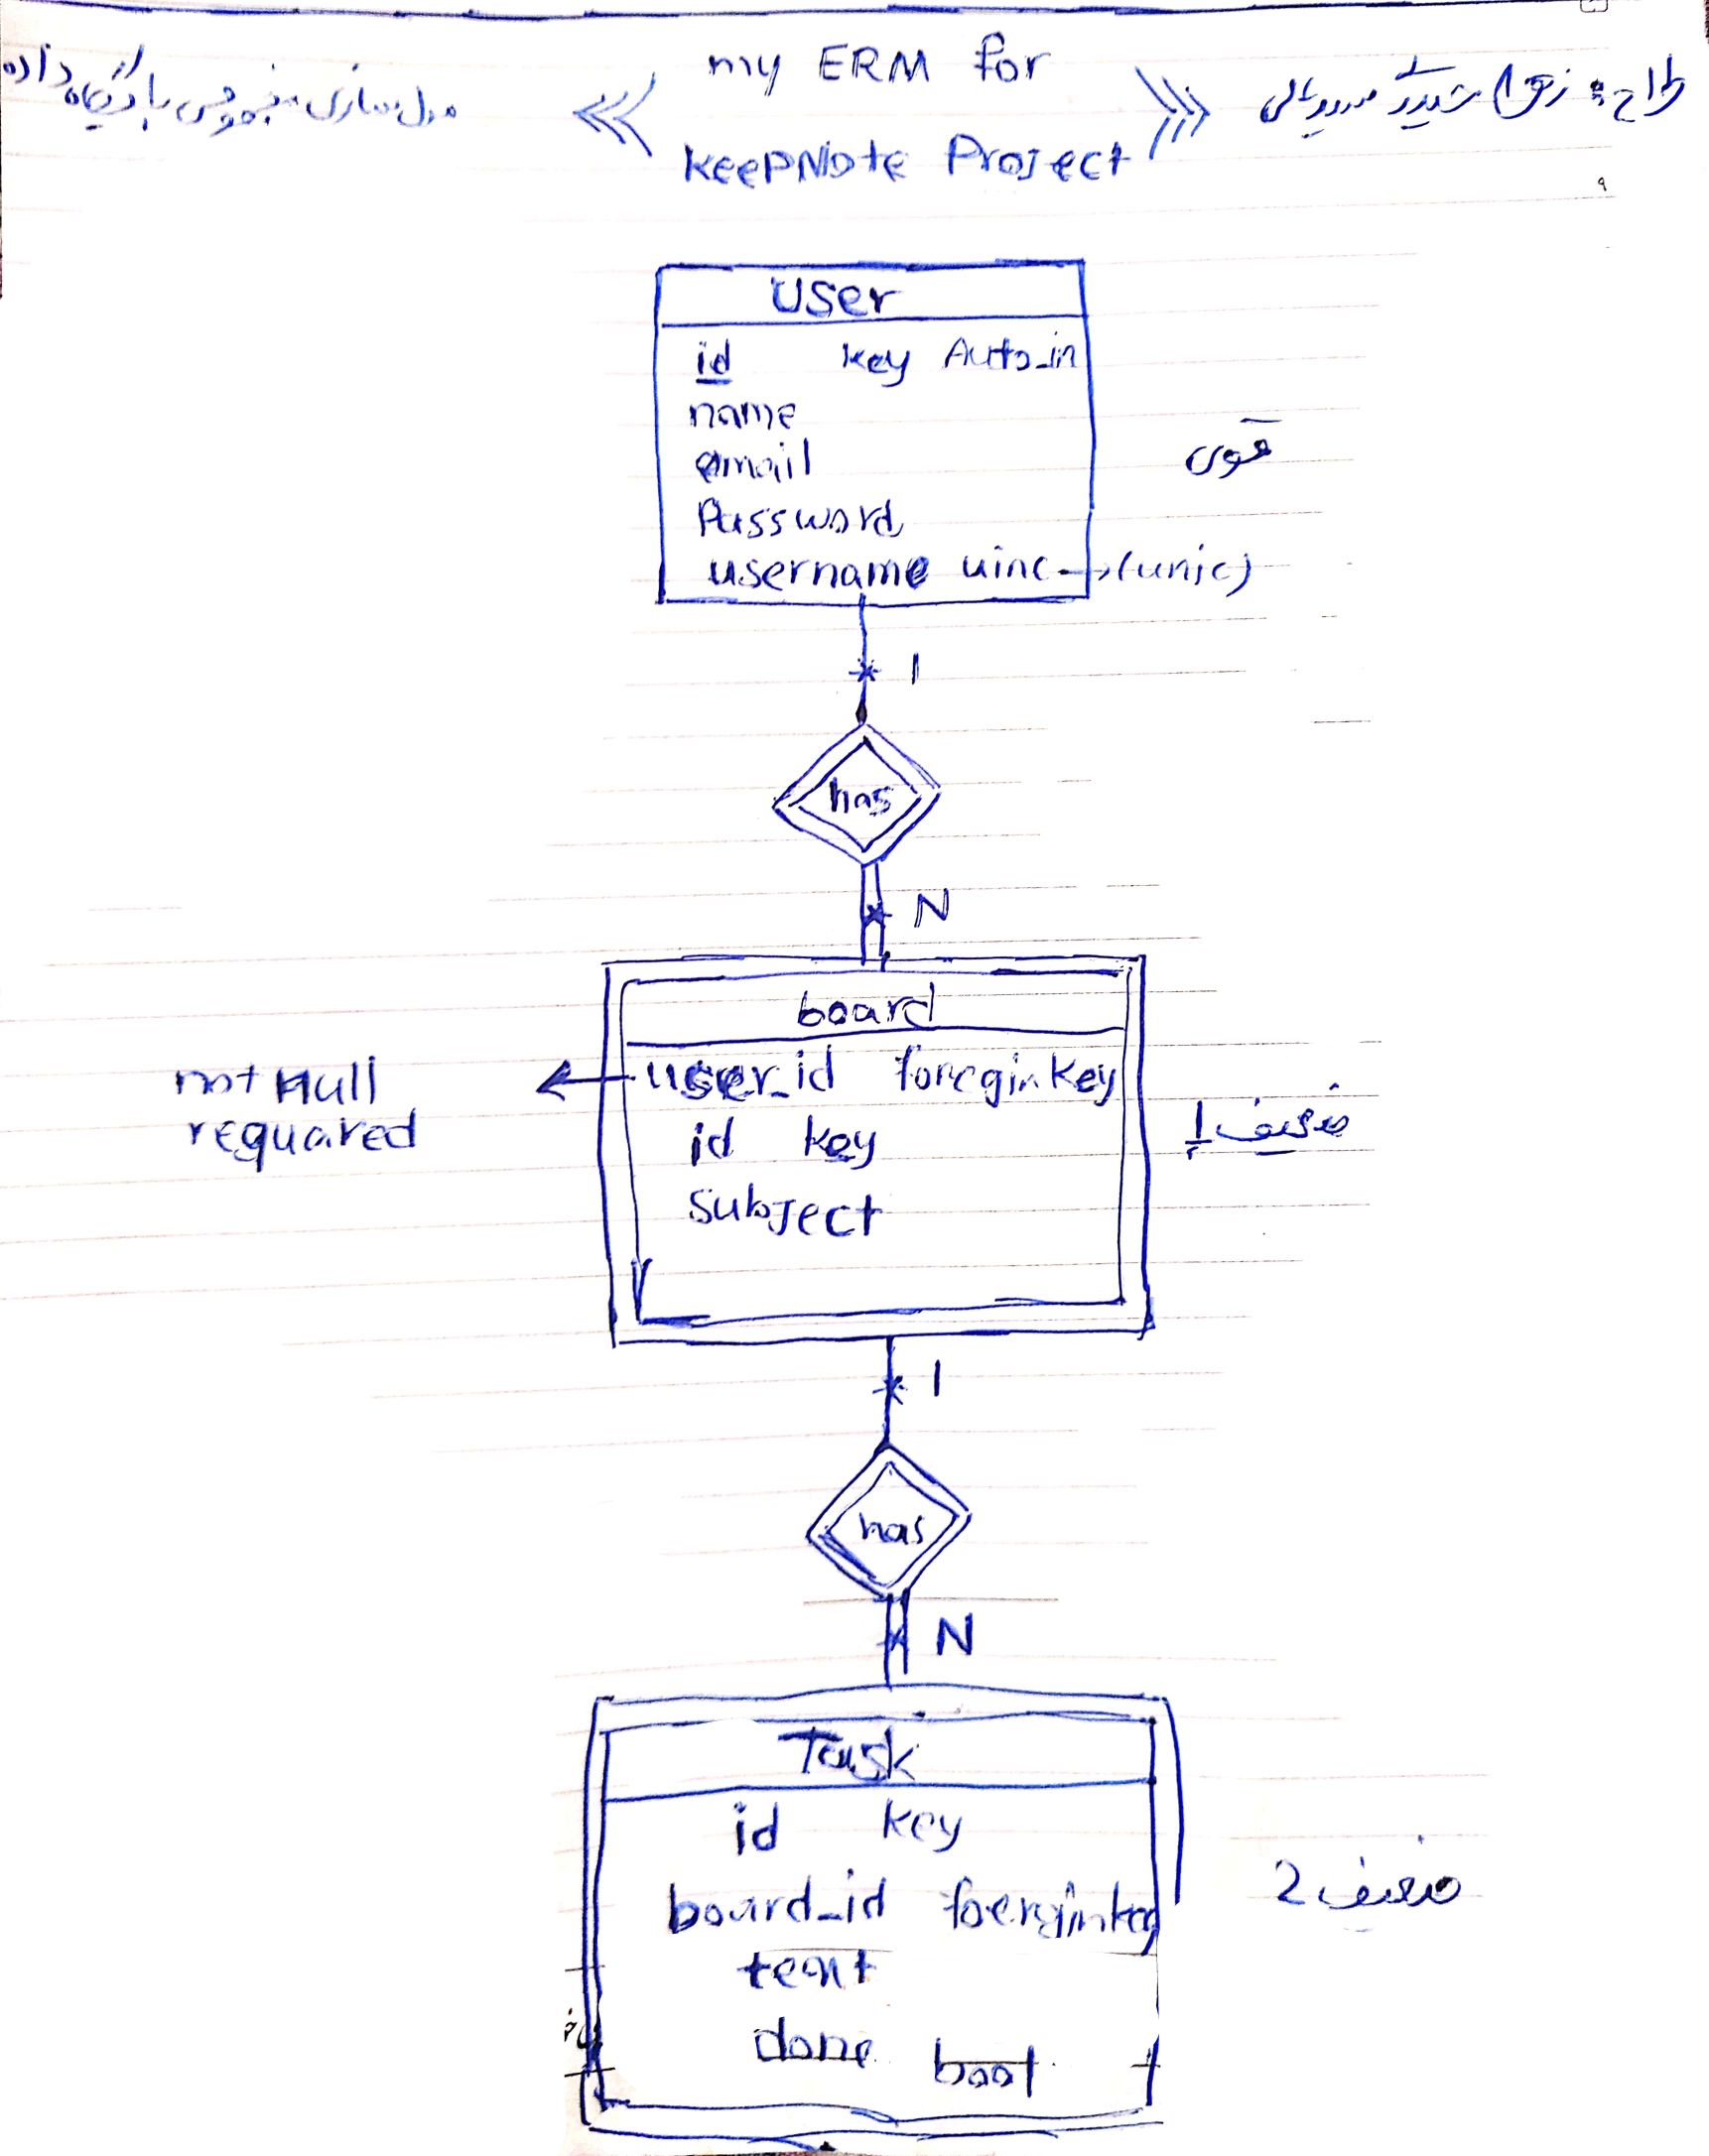 my ERM for
KeepNote Project
مدل سازی مفهومی پایگاه داده
طراح: زهرا
User
id key Auto_in
name
email
Password
username uinc → (unic)
قوی
1
has
N
board
user_id foregin key
id key
Subject
not null
requared
ضعیف 1
1
has
N
Task
id key
board_id foerginkey
text
done bool
ضعیف 2